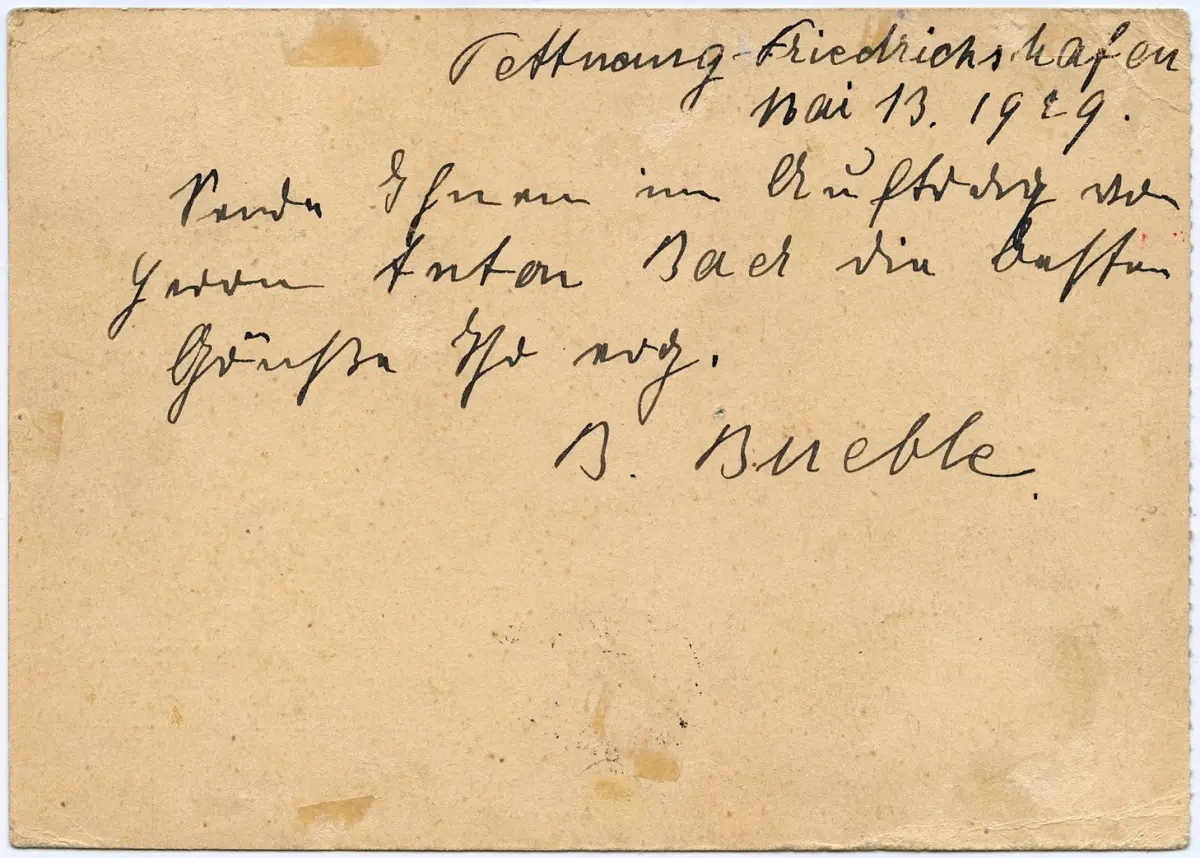 Tettnang-Friedrichshafen
Mai 13. 1929.
Sende Ihnen im Auftrag von
Herrn Anton Back die besten
Grüße Ihr erg.
B. Bueble